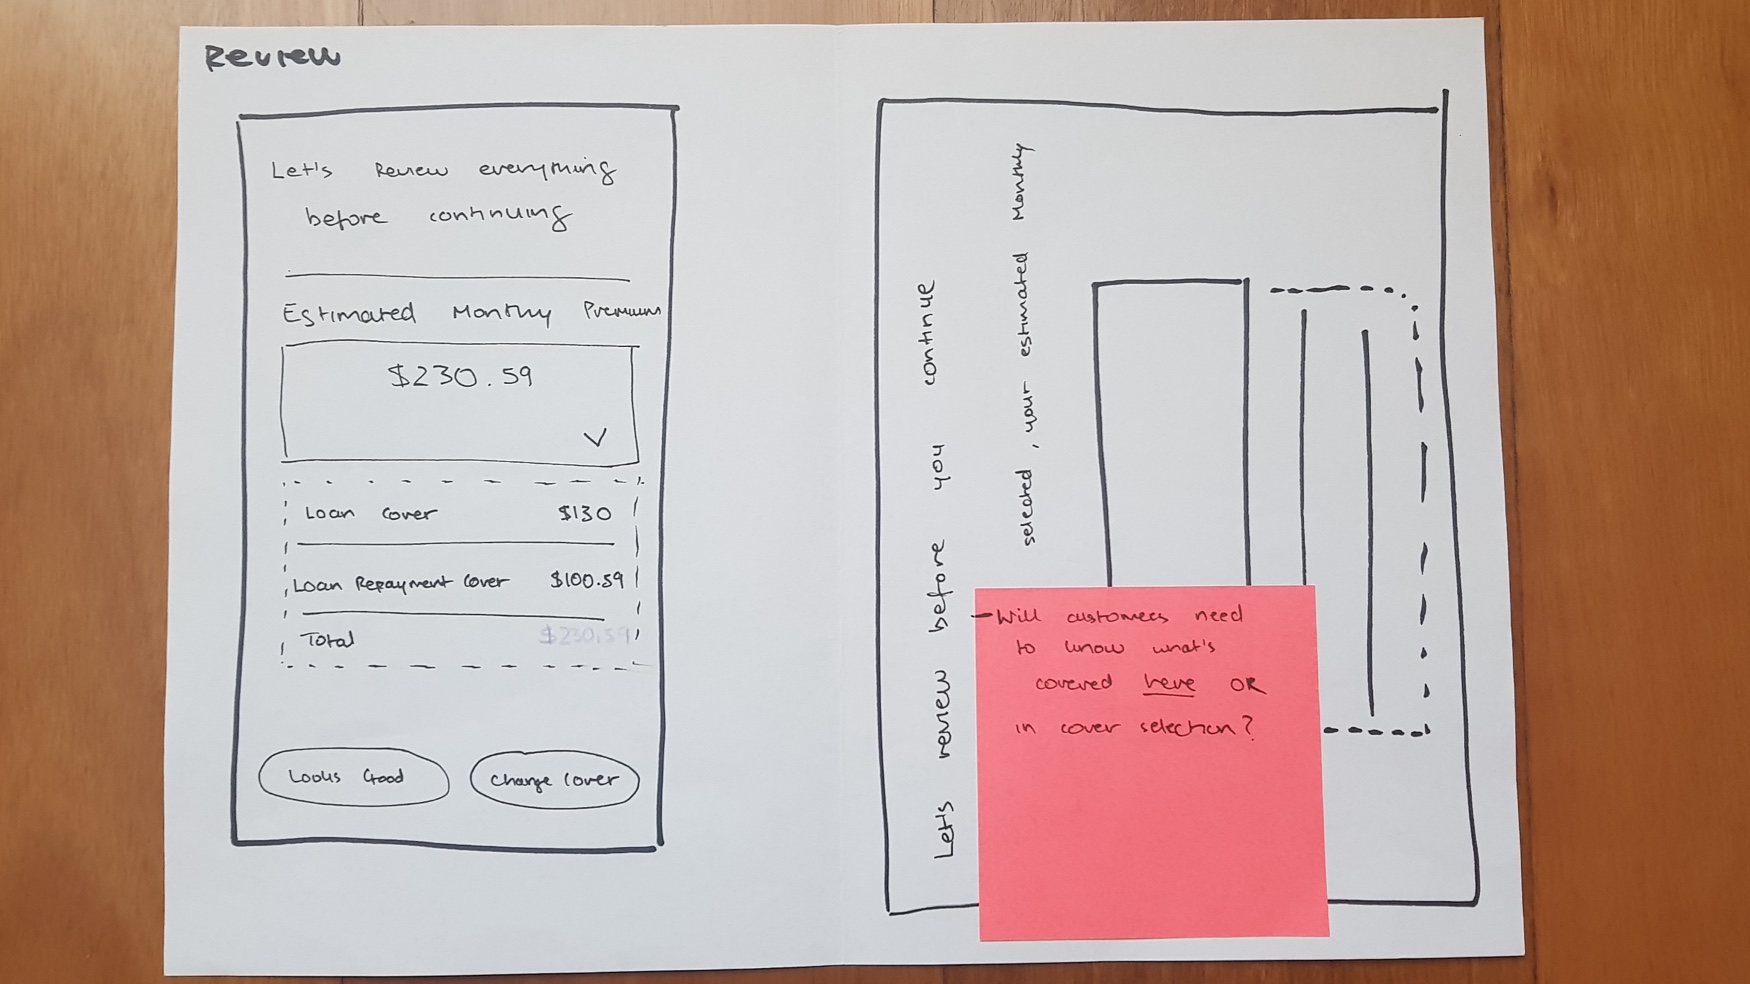 Review
Let's Review everything
before continuing
Estimated Monthly Premium
$230.59
Loan Cover $130
Loan Repayment Cover $100.59
Total $230.59
Looks Good
Change Cover
Let's review before you continue
selected, your estimated Monthly
-Will customers need
to know what's
covered here OR
in cover selection?